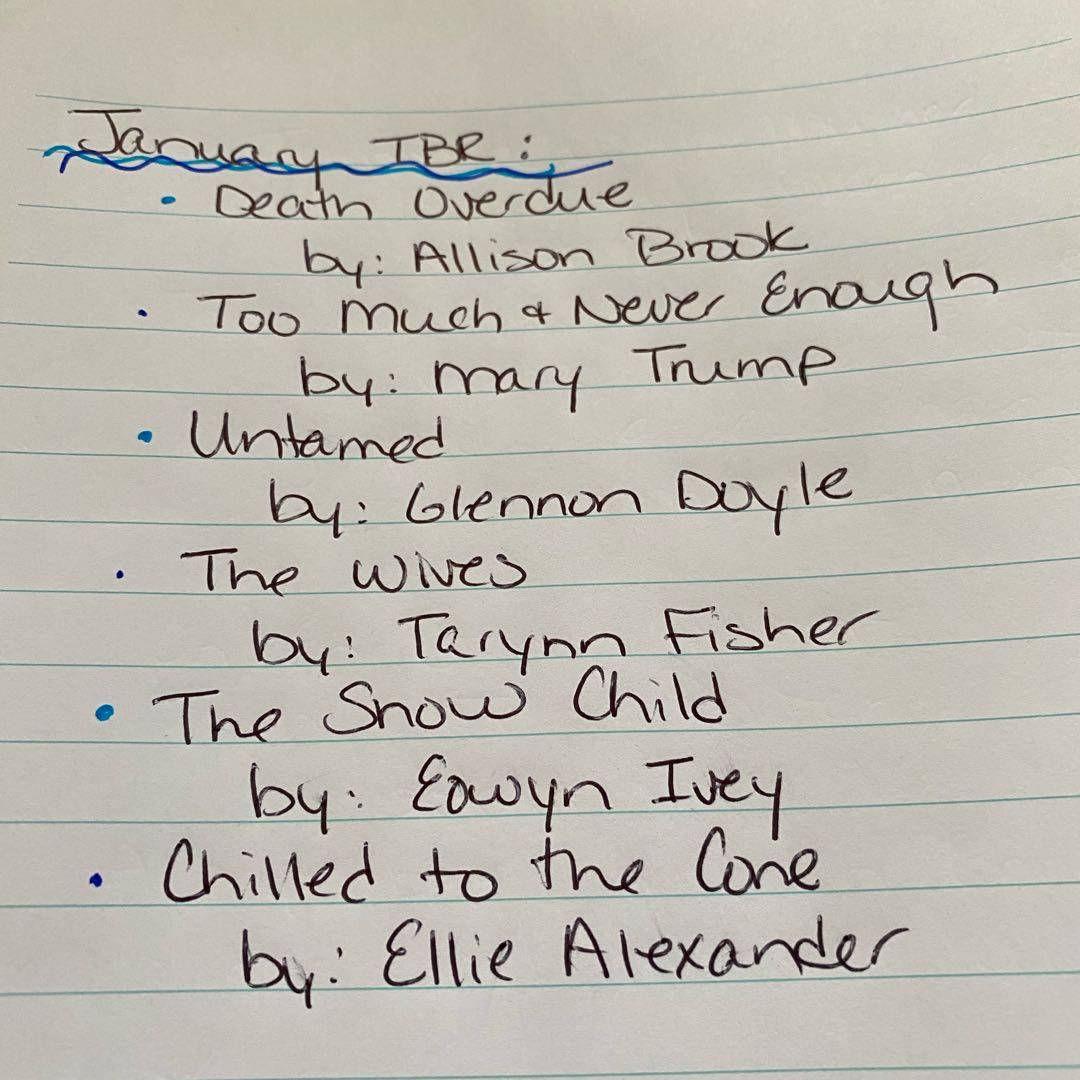 January TBR:
• Death Overdue
by: Allison Brook
• Too Much & Never Enough
by: Mary Trump
• Untamed
by: Glennon Doyle
• The Wives
by: Tarynn Fisher
• The Snow Child
by: Eowyn Ivey
• Chilled to the Cone
by: Ellie Alexander